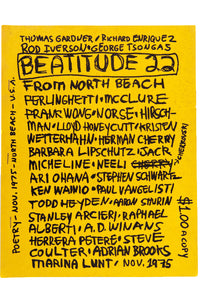 THOMAS GARDNER / RICHARD ENRIQUEZ
ROD IVERSON • GEORGE TSONGAS
BEATITUDE 22
FROM NORTH BEACH
FERLINGHETTI • MCCLURE
FRANS WONG • NORSE • HIRSCH-
MAN • LLOYD HONEYCUTT • KRISTEN
WETTERHAHN • HERMAN CHERRY
BARBARA LIPSCHUTZ • JACK
MICHELINE • NEELI CHERRY
CHERKOVSKI
ARI OHANA • STEPHEN SCHWARTZ
KEN WAINIO • PAUL VANGELISTI
TODD HEYDEN • AARON SHURIN
STANLEY ARCIERI • RAPHAEL
ALBERTI • A.D. WINANS
HERRERA PETERE • STEVE
COULTER • ADRIAN BROOKS
MARINA LUNT • NOV. 1975
POETRY — NOV. 1975 — NORTH BEACH — U.S.A.
$1.00 A COPY